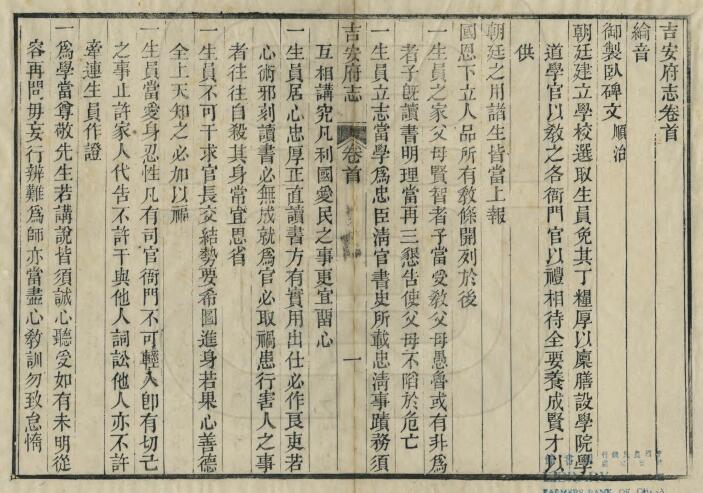 吉安府志卷首
綸音
御製臥碑文順治
朝廷建立學校選取生員免其丁糧厚以廩膳設學院學
道學官以敎之各衙門官以禮相待全要養成賢才以
供
朝廷之用諸生皆當上報
國恩下立人品所有敎條開列於後
一生員之家父母賢智者子當受敎父母愚魯或有非爲
者子旣讀書明理當再三懇告使父母不陷於危亡
一生員立志當學爲忠臣淸官書史所載忠淸事蹟務須
吉安府志
卷首
一
互相講究凡利國愛民之事更宜留心
一生員居心忠厚正直讀書方有實用出仕必作良吏若
心術邪刻讀書必無成就爲官必取禍患行害人之事
者往往自殺其身常宜思省
一生員不可干求官長交結勢要希圖進身若果心善德
全上天知之必加以福
一生員當愛身忍性凡有司官衙門不可輕入卽有切己
之事止許家人代告不許干與他人詞訟他人亦不許
牽連生員作證
一爲學當尊敬先生若講說皆須誠心聽受如有未明從
容再問毋妄行辨難爲師亦當盡心敎訓勿致怠惰